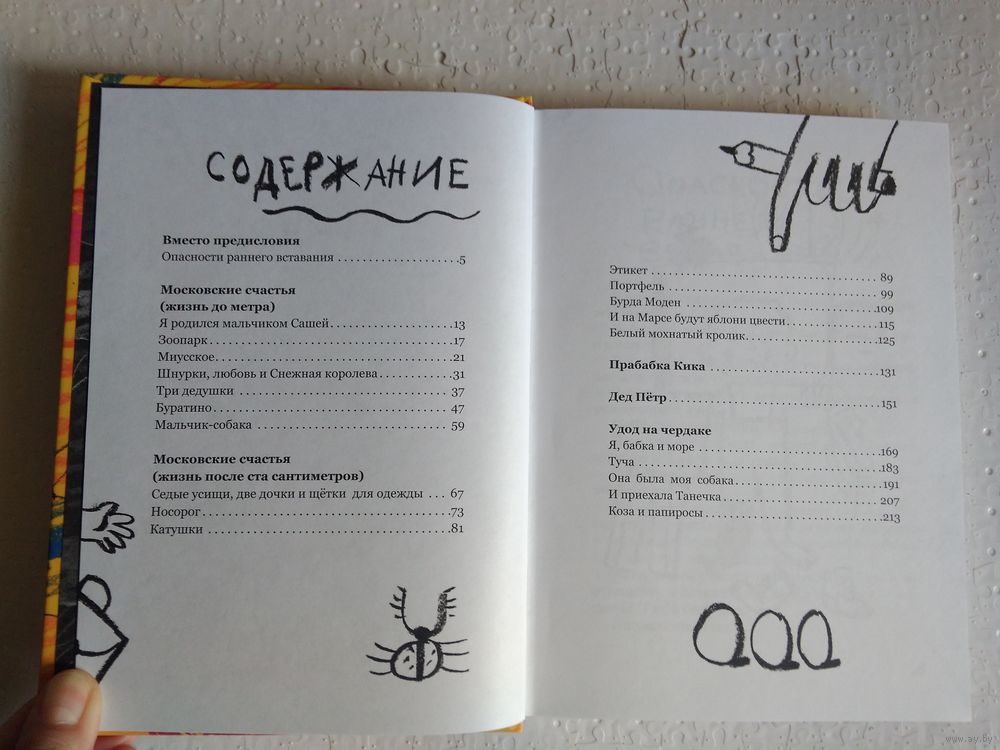 СОДЕРЖАНИЕ
Вместо предисловия
Опасности раннего вставания ...................5
Московские счастья
(жизнь до метра)
Я родился мальчиком Сашей...................13
Зоопарк ...................17
Миусское...................21
Шнурки, любовь и Снежная королева...........31
Три дедушки ................... 37
Буратино................... 47
Мальчик-собака ................... 59
Московские счастья
(жизнь после ста сантиметров)
Седые усищи, две дочки и щётки для одежды ... 67
Носорог...................73
Катушки ...................81
Этикет ................... 89
Портфель ................... 99
Бурда Моден ...................109
И на Марсе будут яблони цвести............. 115
Белый мохнатый кролик...................125
Прабабка Кика ...................131
Дед Пётр...................151
Удод на чердаке
Я, бабка и море ...................169
Туча ...................183
Она была моя собака...................191
И приехала Танечка................... 207
Коза и папиросы ...................213
www.ay.by